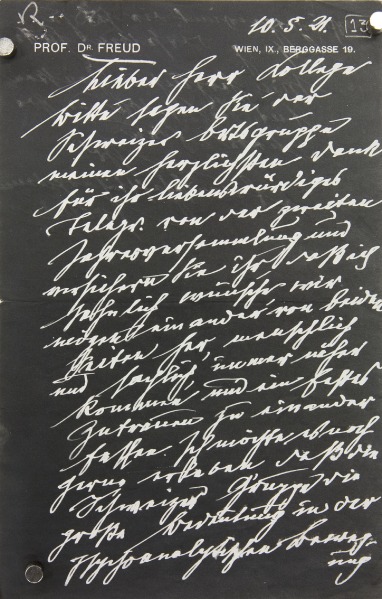 10. 5. 21.
13
PROF. DR. FREUD
WIEN, IX., BERGGASSE 19.
Lieber Herr College
Bitte sagen Sie der
Schweizer Ortsgruppe
meinen herzlichsten Dank
für ihr liebenswürdiges
Telegr. von der zweiten
Jahresversammlung und
versichern Sie ihr, daß ich
sehnlich wünsche wir
mögen einander von beiden
Seiten her, menschlich
und sachlich, immer näher
kommen und ein festes
Zutrauen zu einander
fassen. Ich möchte es noch
gerne erleben daß die
Schweizer Gruppe die
große Bedeutung in der
psychoanalytischen Beweg-
ung